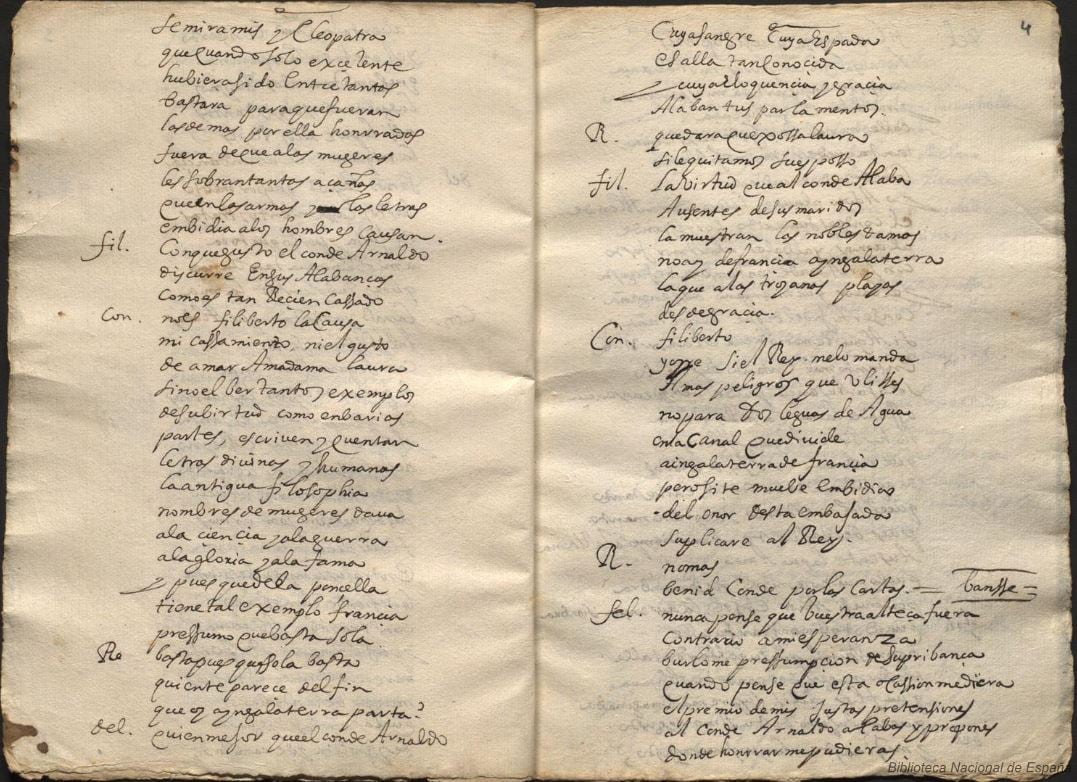 semiramis y Cleopatra
que quando solo excelente
hubiera sido Entre tantas
bastara para que fueran
las demas por ella honrradas
fuera de que a las mugeres
les sobran tantas
que en las armas y las letras
embidia a los hombres Causan.
fil. Con que gusto el conde Arnaldo
discurre En sus Alabancas
como es tan Recien Cassado
Con. no es filiberto la Causa
mi cassamiento, ni el gusto
de amar A madama laura
sino el ber tantos exemplos
de su birtud como en barias
partes, escriven y quentan
letras divinas y humanas
la antigua filosophia
nombres de mugeres dava
a la ciencia y a la guerra
a la gloria y a la fama
y pues que de la poncella
tiene tal exemplo francia
pressumo que basta sola
Re basta pues que sola basta
quien te parece delfin
que oy a yngalaterra parta?
del. quien mejor que el conde Arnaldo
4
Cuya sangre Cuya Espada
es alla tan Conocida
y cuya Eloquencia y gracia
Alaban tus parlamentos.
R. quedara quexossa laura
si le quitamos su esposso
fil. La virtud que al conde Alaba
Ausentes de sus maridos
la muestran los nobles damas
no ay de francia a yngalaterra
la que a las troyanas playas
des de grecia.
Con. filiberto
yo si el Rey me lo manda
A mas peligros que Ulisses
no para dos leguas de Agua
en la Canal que divide
a ingalaterra de francia
pero si te mueve embidia
del onor desta embajada
suplicare al Rey.
R. no mas
benid Conde por las Cartas. = banse =
fel. nunca pense que buestra alteca fuera
contrario a mi esperanza
burlome pressumpcion de su pribanca
quando pense que esta ocassion me diera
el premio de mis justas pretensiones
al Conde Arnaldo alabas y propones
donde honrrarme pudieras
Biblioteca Nacional de España